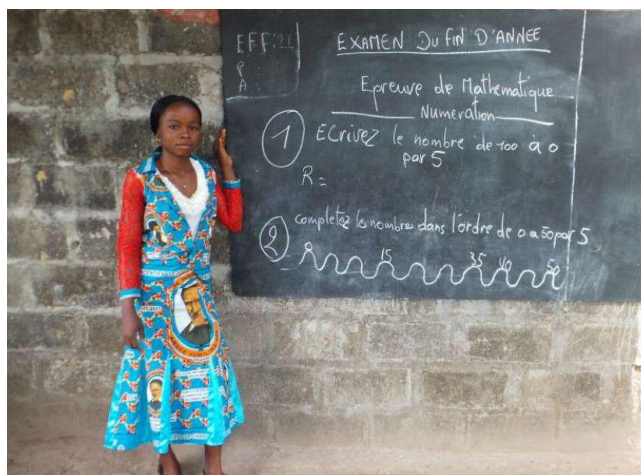 EFF: 21
P
A
EXAMEN DU FIN D'ANNEE
Epreuve de Mathematique
Numeration
1 Ecrivez le nombre de 100 à 0
par 5
R =
2 completez les nombres dans l'ordre de 0 a 50 par 5
0 15 35 40 50